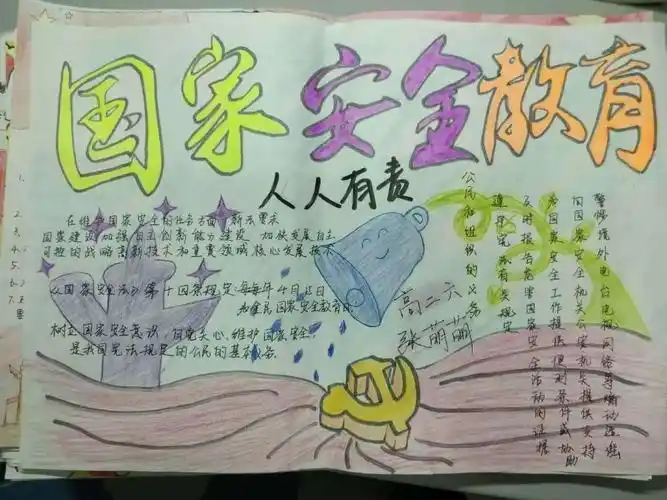 国家安全教育
人人有责
在维护国家安全的任务方面,新法要求
国家建设加强自主创新能力建设,加快发展自主
可控的战略高新技术和重要领域核心发展技术
《国家安全法》第十四条规定:每年4月15日
为全民国家安全教育日
树立国家安全意识,自觉关心、维护国家安全,
是我国宪法规定的公民的基本义务。
高二六
张萌萌
公民和组织的义务
遵守宪法有关规定
及时报告危害国家安全活动的证据
为国家安全工作提供便利条件或协助
向国家安全机关公安机关提供支持
警惕境外电台电视网络等煽动
1.
2.
3.
4.
5.
6.
7.